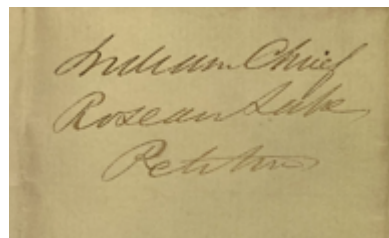 Indian Chief
Roseau Lake
Petition